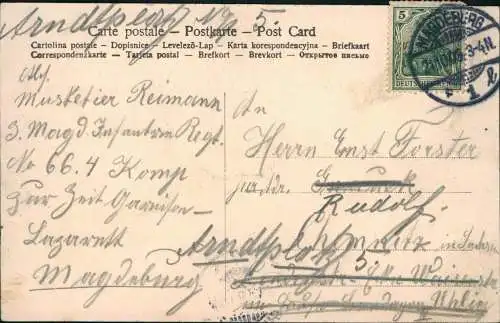 Arndtplatz No 5.
Carte postale - Postkarte - Post Card
Cartolina postale - Dopisnice - Levelező-Lap - Karta korespondencyjna - Briefkaart
Correspondenzkarte - Tarjeta postal - Brefkort - Brevkort - Открытое письмо
5
MAGDEBURG
3-4N
DEUTSCHES REICH
Abs.
Musketier Reimann
3. Magd. Infantrie Regt.
No 66. 4 Komp
Zur Zeit Garnison-
Lazarett
Magdeburg
An
Herrn Ernst Forster
Rudolf.
Chemnitz in Sachsen
Arndtplatz 5.
Ecke
im Hause
Uhlig